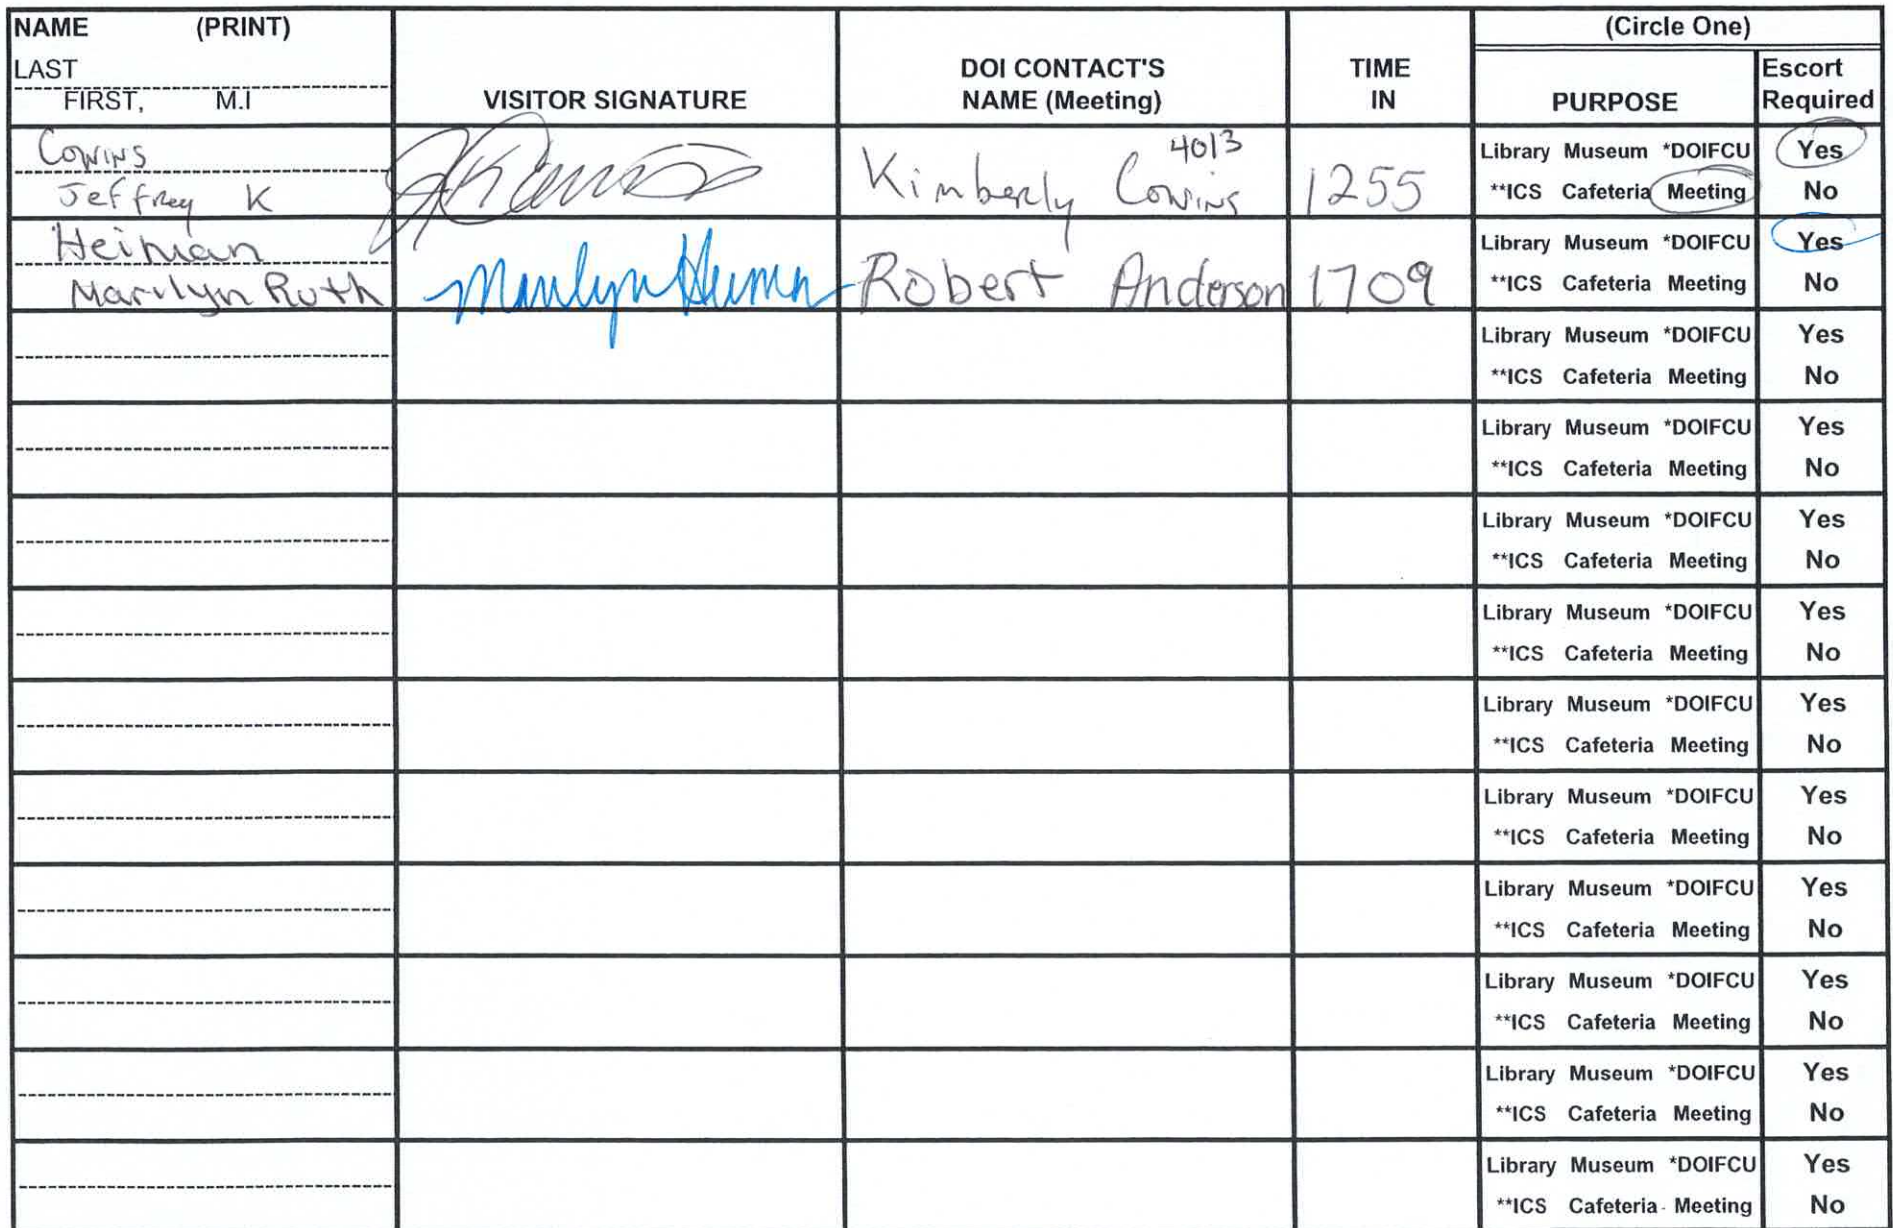 NAME (PRINT)
LAST
FIRST, M.I
VISITOR SIGNATURE
DOI CONTACT'S
NAME (Meeting)
TIME
IN
(Circle One)
PURPOSE
Escort
Required
Cowins
Jeffrey K
4013
Kimberly Cowins
1255
Library Museum *DOIFCU Yes
**ICS Cafeteria Meeting No
Heiman
Marilyn Ruth
Marilyn Heiman
Robert Anderson
1709
Library Museum *DOIFCU Yes
**ICS Cafeteria Meeting No
Library Museum *DOIFCU Yes
**ICS Cafeteria Meeting No
Library Museum *DOIFCU Yes
**ICS Cafeteria Meeting No
Library Museum *DOIFCU Yes
**ICS Cafeteria Meeting No
Library Museum *DOIFCU Yes
**ICS Cafeteria Meeting No
Library Museum *DOIFCU Yes
**ICS Cafeteria Meeting No
Library Museum *DOIFCU Yes
**ICS Cafeteria Meeting No
Library Museum *DOIFCU Yes
**ICS Cafeteria Meeting No
Library Museum *DOIFCU Yes
**ICS Cafeteria Meeting No
Library Museum *DOIFCU Yes
**ICS Cafeteria Meeting No
Library Museum *DOIFCU Yes
**ICS Cafeteria Meeting No